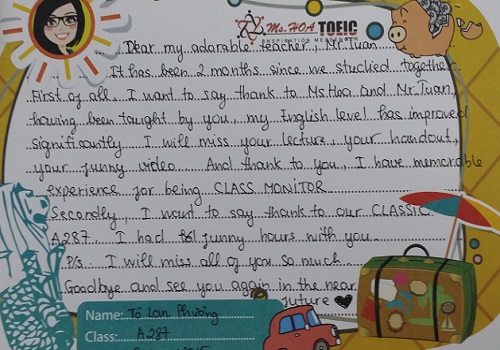 Ms.HOA TOEIC
INSPIRATION MESSENGER
Dear my adorable teacher, Mr Tuan
It has been 2 months since we studied together.
First of all, I want to say thank to Ms Hoa and Mr Tuan,
having been taught by you, my English level has improved
significantly. I will miss your lecture, your handout,
your funny video. And thank to you, I have memorable
experience for being CLASS MONITOR
Secondly, I want to say thank to our CLASSIC
A287. I had funny hours with you.
P/s: I will miss all of you so much
Goodbye and see you again in the near
future
Name: Tô Lan Phương
Class: A287